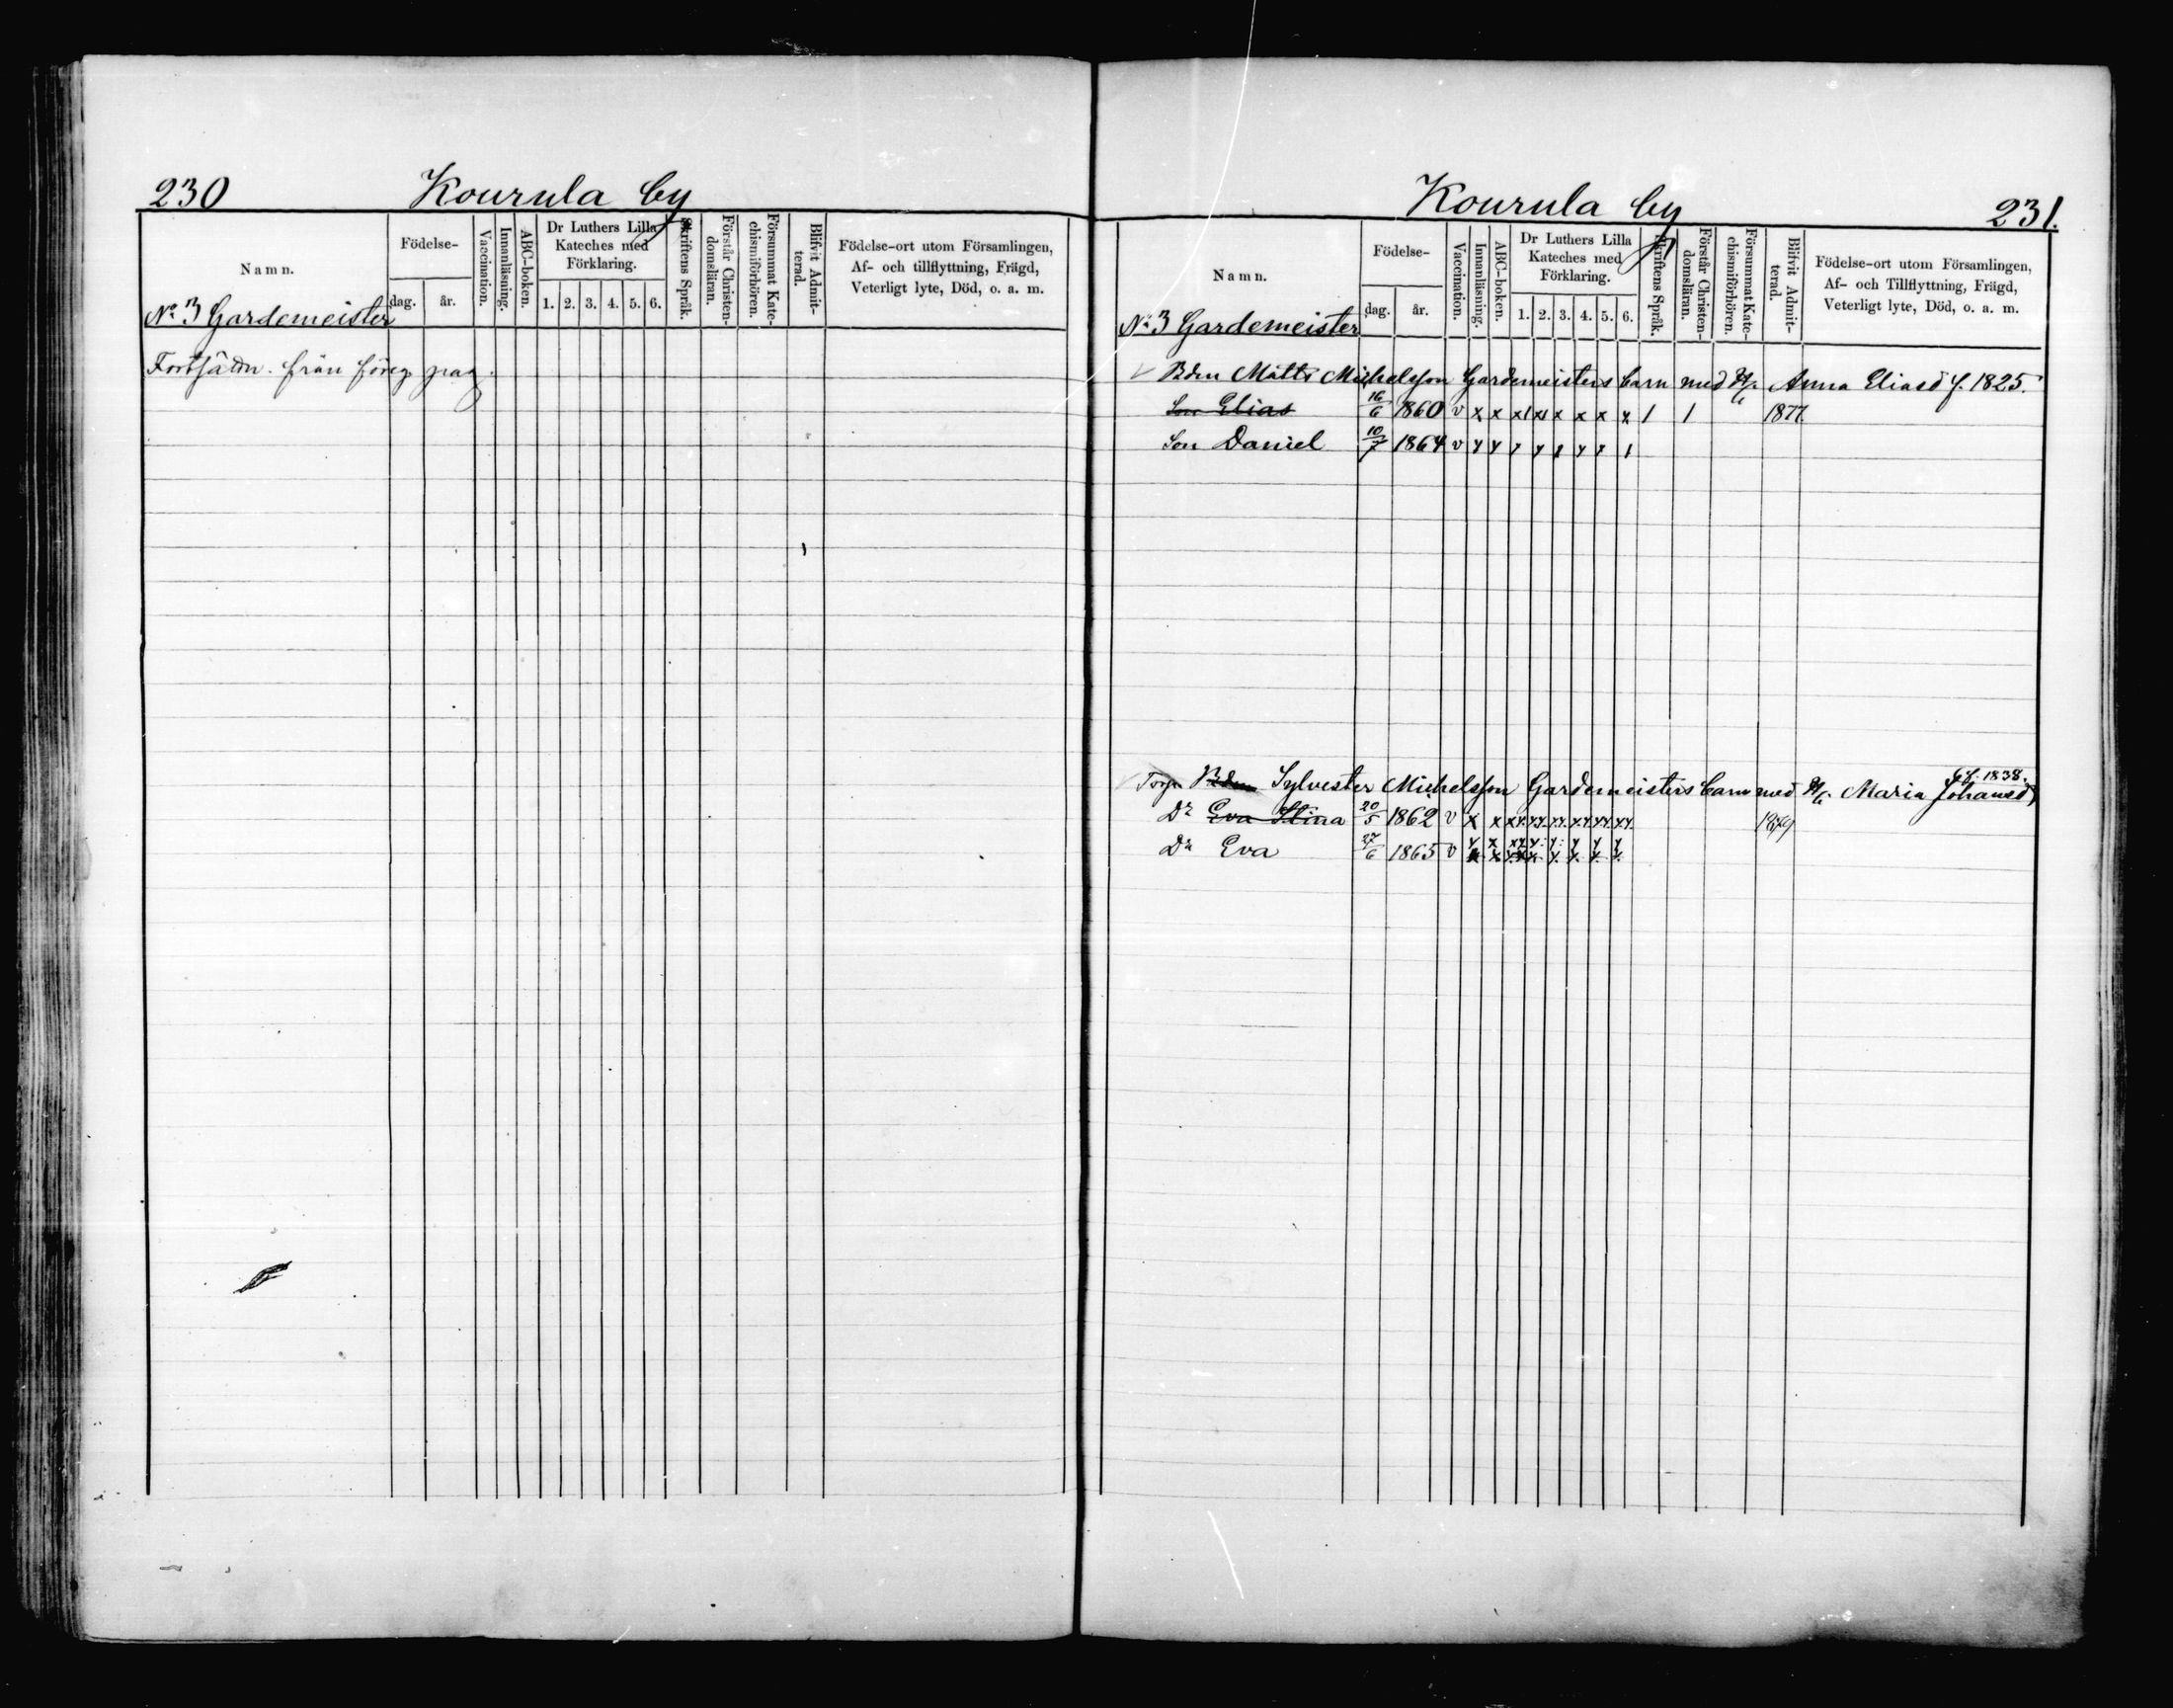 230 Kourula by
Namn. Födelse- dag. år. Vaccination. Innanläsning. ABC-boken. Dr Luthers Lilla Kateches med Förklaring. 1. 2. 3. 4. 5. 6. Skriftens Språk. Förstår Christen-domsläran. Försummat Kate-chismiförhören. Blifvit Admit-terad. Födelse-ort utom Församlingen, Af- och tillflyttning, Frägd, Veterligt lyte, Död, o. a. m.
No 3 Gardemeister
från föreg. pag.
Kourula by 231.
Namn. Födelse- dag. år. Vaccination. Innanläsning. ABC-boken. Dr Luthers Lilla Kateches med Förklaring. 1. 2. 3. 4. 5. 6. Skriftens Språk. Förstår Christen-domsläran. Försummat Kate-chismiförhören. Blifvit Admit-terad. Födelse-ort utom Församlingen, Af- och Tillflyttning, Frägd, Veterligt lyte, Död, o. a. m.
No 3 Gardemeister
Bdn Matts Michelsson Gardemeisters barn med H/. Anna Eliasd f. 1825.
Son Elias 16/6 1860 v x x x1 x1 x x x x 1 1 1877.
Son Daniel 10/7 1864 v
Torp. Bdn Sylvester Michelsson Gardemeisters barn med H/. Maria Johansd f. 1838.
Dr Eva Stina 20/5 1862 v x x 1879
Dr Eva 27/6 1865 v